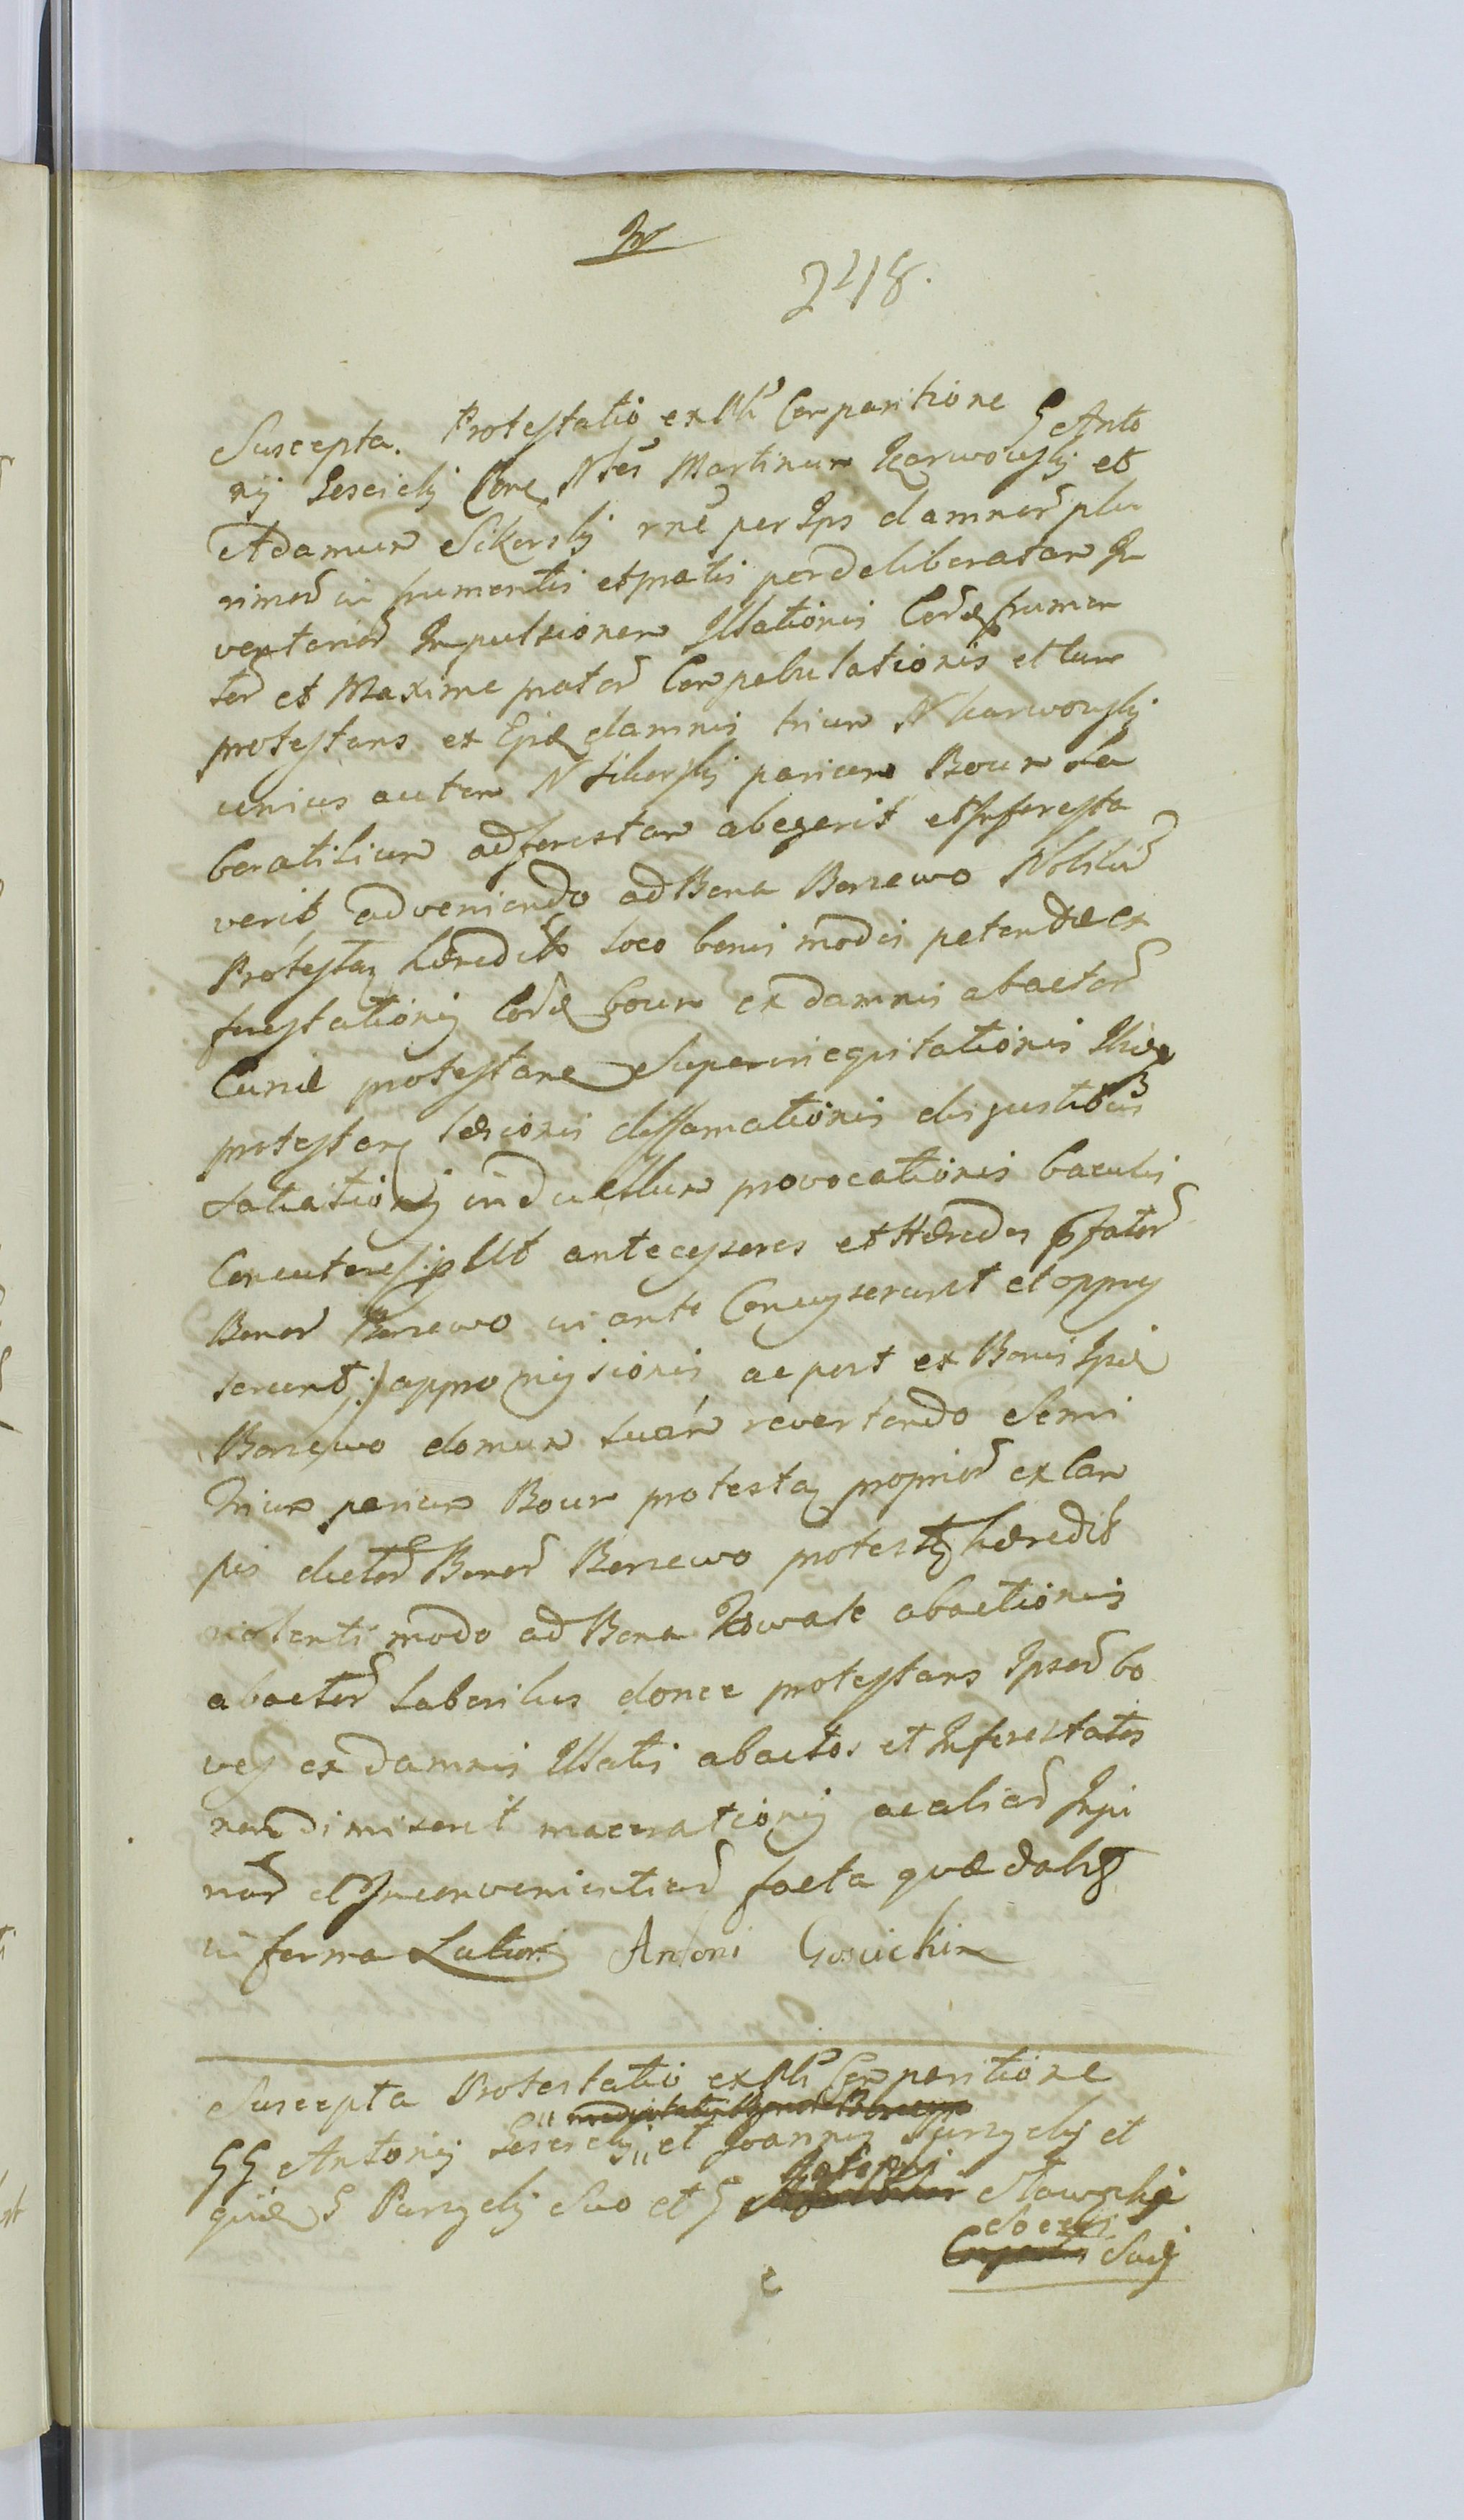 248.
Suscepta. Protestatio ex Pli Comparitione G Anto
nij Goscicky Cone Nles Martinum Karwowsky et
Adamum Sikorsky rne per Ips damnor plu
rimor in frumentis et pratis per deliberatam In
ventarior Impulsionem Illationis Eor frumen
tor et Maxime prator Compabulationis et tum
protestans ex Ejs damnis trium N Karwowsky
unius autem N Sikorsky parium Boum La
boratilium ad forestam abegerit et Inforesta
verit adveniendo ad Bona Borzewo Nobilium
Protestan haeredit loco bonis modis petendae ex
forestationis Eor boum ex damnis abactor
Cum protestane Superinequitationis
protestans laesionis diffamationis disgustibus
satiationis in duellum provocationis baculis
Concutere /: p Ut antecessores et Haeredes pfator
Bonor Borzewo vi ante Concusserunt et oppres
serunt :/ appromissionis ac post ex Bonis Ips
Borzewo domum suam revertendo Semi
Trium parium Boum protestan proprior ex Cam
pis dictor Bonor Borzewo protestan haeredit
violenti modo ad Bona Kowale abactionis
abactor laboribus donec protestans Ipsor bo
ves ex damnis Illatis abactos et Inforestatos
non dimiserit macerationis ac aliar Inju
riar et Inconvenientiar facta quae dabitur
in forma Latiori Antoni Goscickim
Suscepta Protestatio ex Pli Comparitione
GG Antonij Goscicky et Joannis Purzycky et
G Purzycky Suo et G Stawsky
Suaej